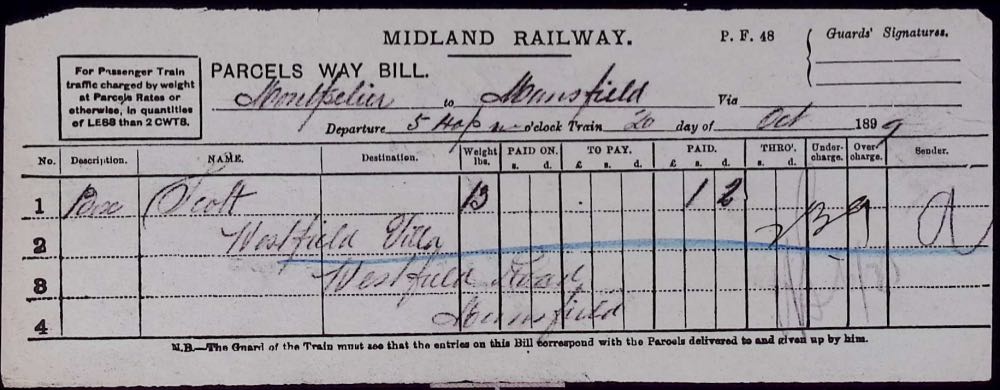 MIDLAND RAILWAY.
P. F. 48
Guards' Signatures.
For Passenger Train
traffic charged by weight
at Parcels Rates or
otherwise, in quantities
of LESS than 2 CWTS.
PARCELS WAY BILL.
Montpelier to Mansfield Via
Departure 5 o'clock Train 20 day of Oct 1899
No. Description. NAME. Destination. Weight lbs. PAID ON. s. d. TO PAY. £ s. d. PAID. £ s. d. THRO'. s. d. Under-charge. Over-charge. Sender.
1 Scott 13 1 2
2 Westfield Villa
3 Westfield Road
4 Mansfield
N.B.—The Guard of the Train must see that the entries on this Bill correspond with the Parcels delivered to and given up by him.